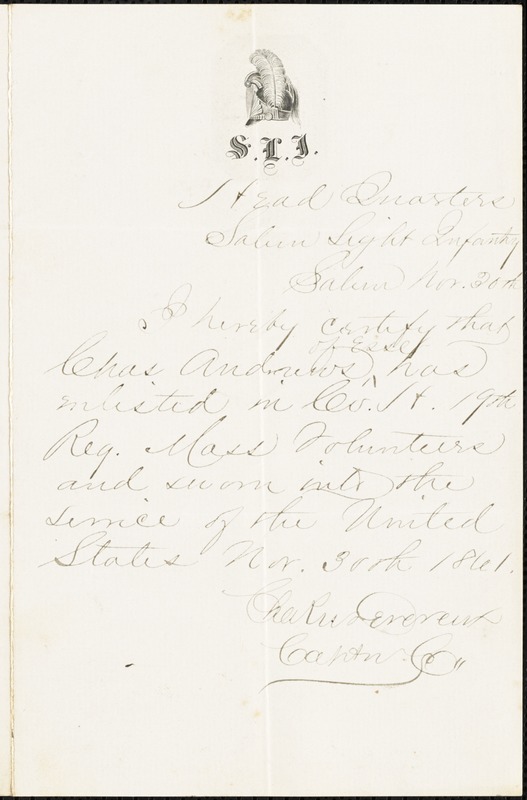 S.L.I.
Head Quarters
Salem Light Infantry
Salem Nov. 30th
I hereby certify that
of Essex
Chas Andrews, has
enlisted in Co. H. 19th
Reg. Mass Volunteers
and sworn into the
service of the United
States Nov. 30th 1861.
Devereux
Captn. Co "